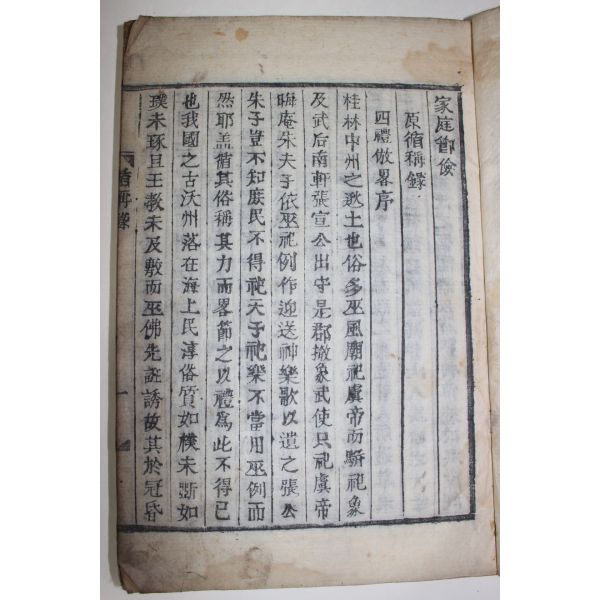 家庭節儉
原循稱錄
四禮倣畧序
桂林中州之遐土也俗多巫風廟祀虞帝而騈祀象
及武后南軒張宣公出守是郡撤象武使只祀虞帝
晦庵朱夫子依巫祀例作迎送神樂歌以遺之張公
朱子豈不知庶民不得祀天子祀樂不當用巫例而
然耶盖循其俗稱其力而畧節之以禮爲此不得已
也我國之古沃州落在海上民淳俗質如樸未斲如
璞未琢且王教未及敷而巫佛先誑誘故其於冠昏
循稱錄
一